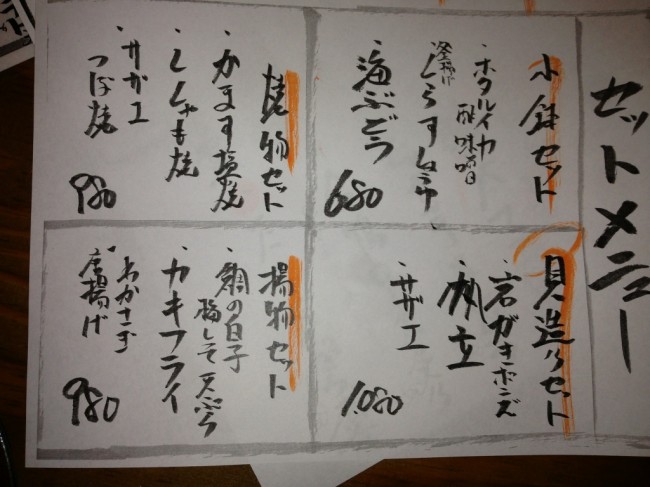 セットメニュー
小鉢セット
・ホタルイカ
酢味噌
釜揚げ
しらす
・海ぶどう
680
貝造りセット
・岩がきポンズ
・帆立
・サザエ
1.080
焼物セット
・かます塩焼
・ししゃも焼
・サザエ
つぼ焼
980
揚物セット
・鯛の白子
天ぷら
・カキフライ
・わかさぎ
唐揚げ
980